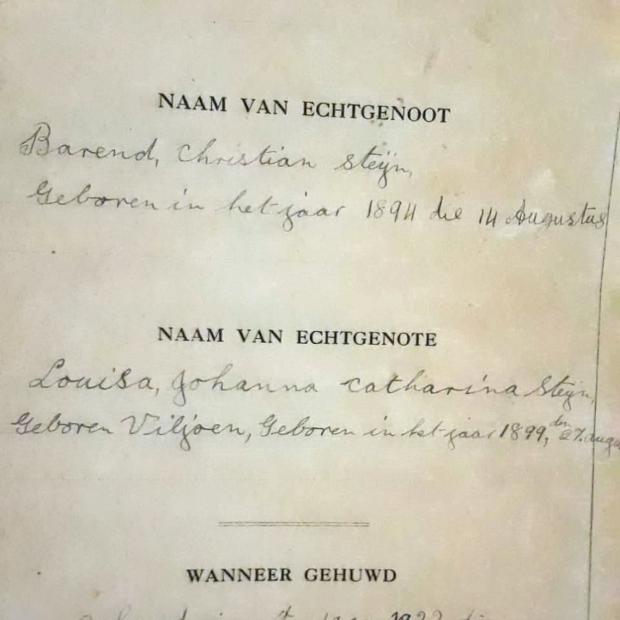 NAAM VAN ECHTGENOOT
Barend, Christian Steijn,
Geboren in het jaar 1894 die 14 Augustus
NAAM VAN ECHTGENOTE
Louisa, Johanna Catharina Steijn,
Geboren Viljoen, Geboren in het jaar 1899, den 27. augu
WANNEER GEHUWD